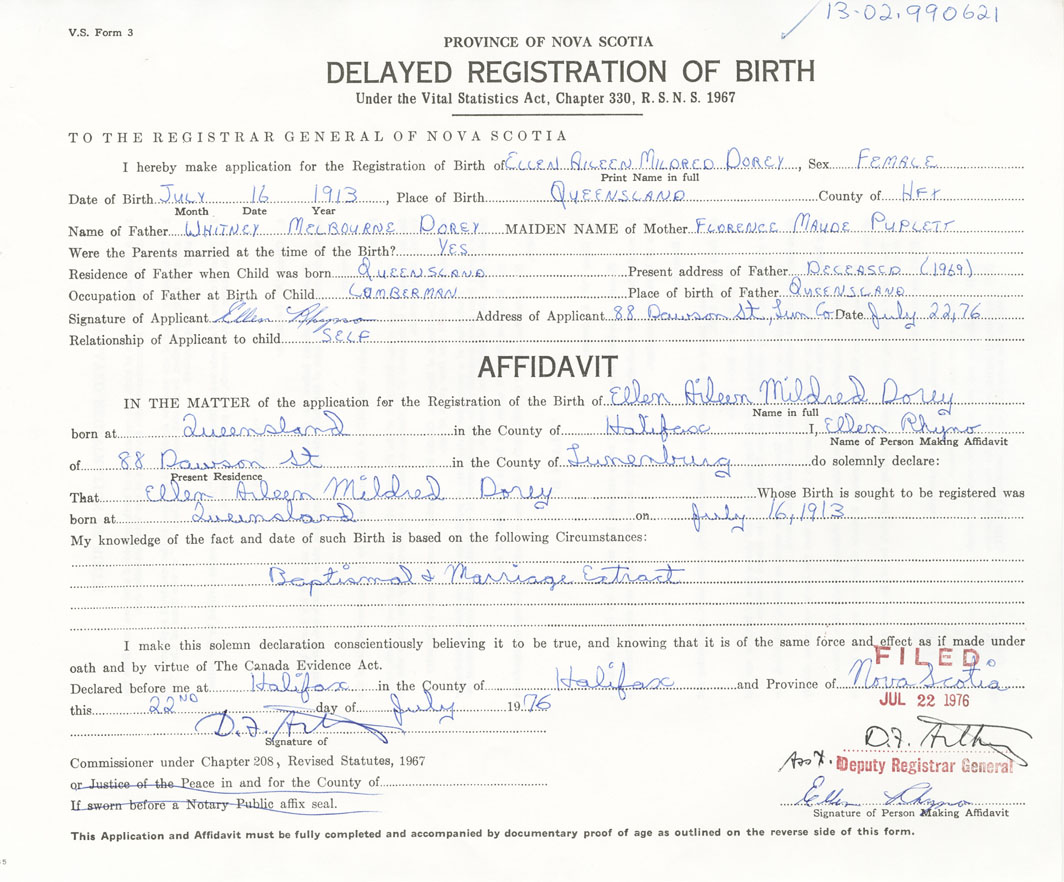 13-02.990621
V.S. Form 3
PROVINCE OF NOVA SCOTIA
DELAYED REGISTRATION OF BIRTH
Under the Vital Statistics Act, Chapter 330, R.S.N.S. 1967
TO THE REGISTRAR GENERAL OF NOVA SCOTIA
I hereby make application for the Registration of Birth of ELLEN AILEEN MILDRED DOREY, Sex FEMALE
Print Name in full
Date of Birth JULY 16 1913, Place of Birth QUEENSLAND County of HFX
Month Date Year
Name of Father WHITNEY MELBOURNE DOREY MAIDEN NAME of Mother FLORENCE MAUDE PUPLETT
Were the Parents married at the time of the Birth? YES
Residence of Father when Child was born QUEENSLAND Present address of Father DECEASED (1969)
Occupation of Father at Birth of Child LUMBERMAN Place of birth of Father QUEENSLAND
Signature of Applicant Ellen Rhyno Address of Applicant 88 Dawson St, Lun Co Date July 22, 76
Relationship of Applicant to child SELF
AFFIDAVIT
IN THE MATTER of the application for the Registration of the Birth of Ellen Aileen Mildred Dorey
Name in full
born at Queensland in the County of Halifax I, Ellen Rhyno
Name of Person Making Affidavit
of 88 Dawson St in the County of Lunenburg do solemnly declare:
Present Residence
That Ellen Aileen Mildred Dorey Whose Birth is sought to be registered was
born at Queensland on July 16, 1913
My knowledge of the fact and date of such Birth is based on the following Circumstances:
Baptismal & Marriage Extract
I make this solemn declaration conscientiously believing it to be true, and knowing that it is of the same force and effect as if made under
oath and by virtue of The Canada Evidence Act.
FILED.
Declared before me at Halifax in the County of Halifax and Province of Nova Scotia
this 22ND day of July 1976
JUL 22 1976
D.F. Arthur
Signature of
D.F. Arthur
Commissioner under Chapter 208, Revised Statutes, 1967
Ass't. Deputy Registrar General
or Justice of the Peace in and for the County of
If sworn before a Notary Public affix seal.
Ellen Rhyno
Signature of Person Making Affidavit
This Application and Affidavit must be fully completed and accompanied by documentary proof of age as outlined on the reverse side of this form.